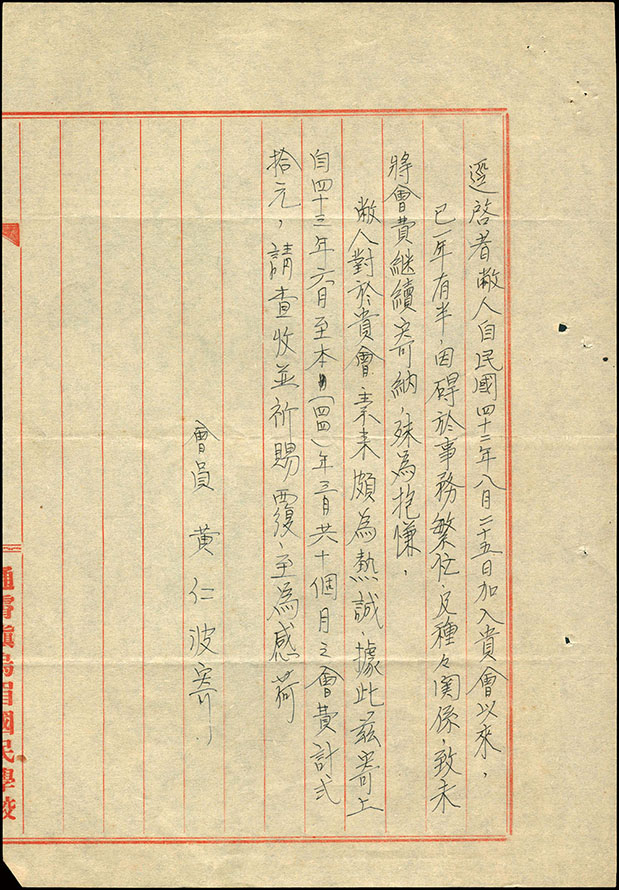 逕啓者敝人自民國四十二年八月二十五日加入貴會以來，
已一年有半，因碍於事務繁忙，及種々関係，致未
將會費継續寄納，殊為抱慊，
敝人對於貴會素来頗為熱誠，據此茲寄上
自四十三年六月至本(四四)年三月共十個月之會費計弍
拾元，請查收並祈賜覆，至為感荷
會員 黃仁波寄
通霄鎮烏眉國民學校